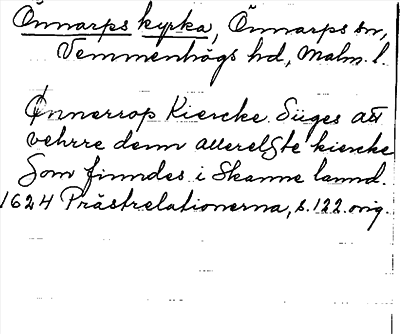 Önnarps kyrka, Önnarps sn,
Vemmenhögs hd, Malm. l.
Ønnerrop Kiercke. Siiges att
vehrre denn allerelste kiercke
Som finndes i Skanne lannd.
1624 Prästrelationerna, s. 122. orig.